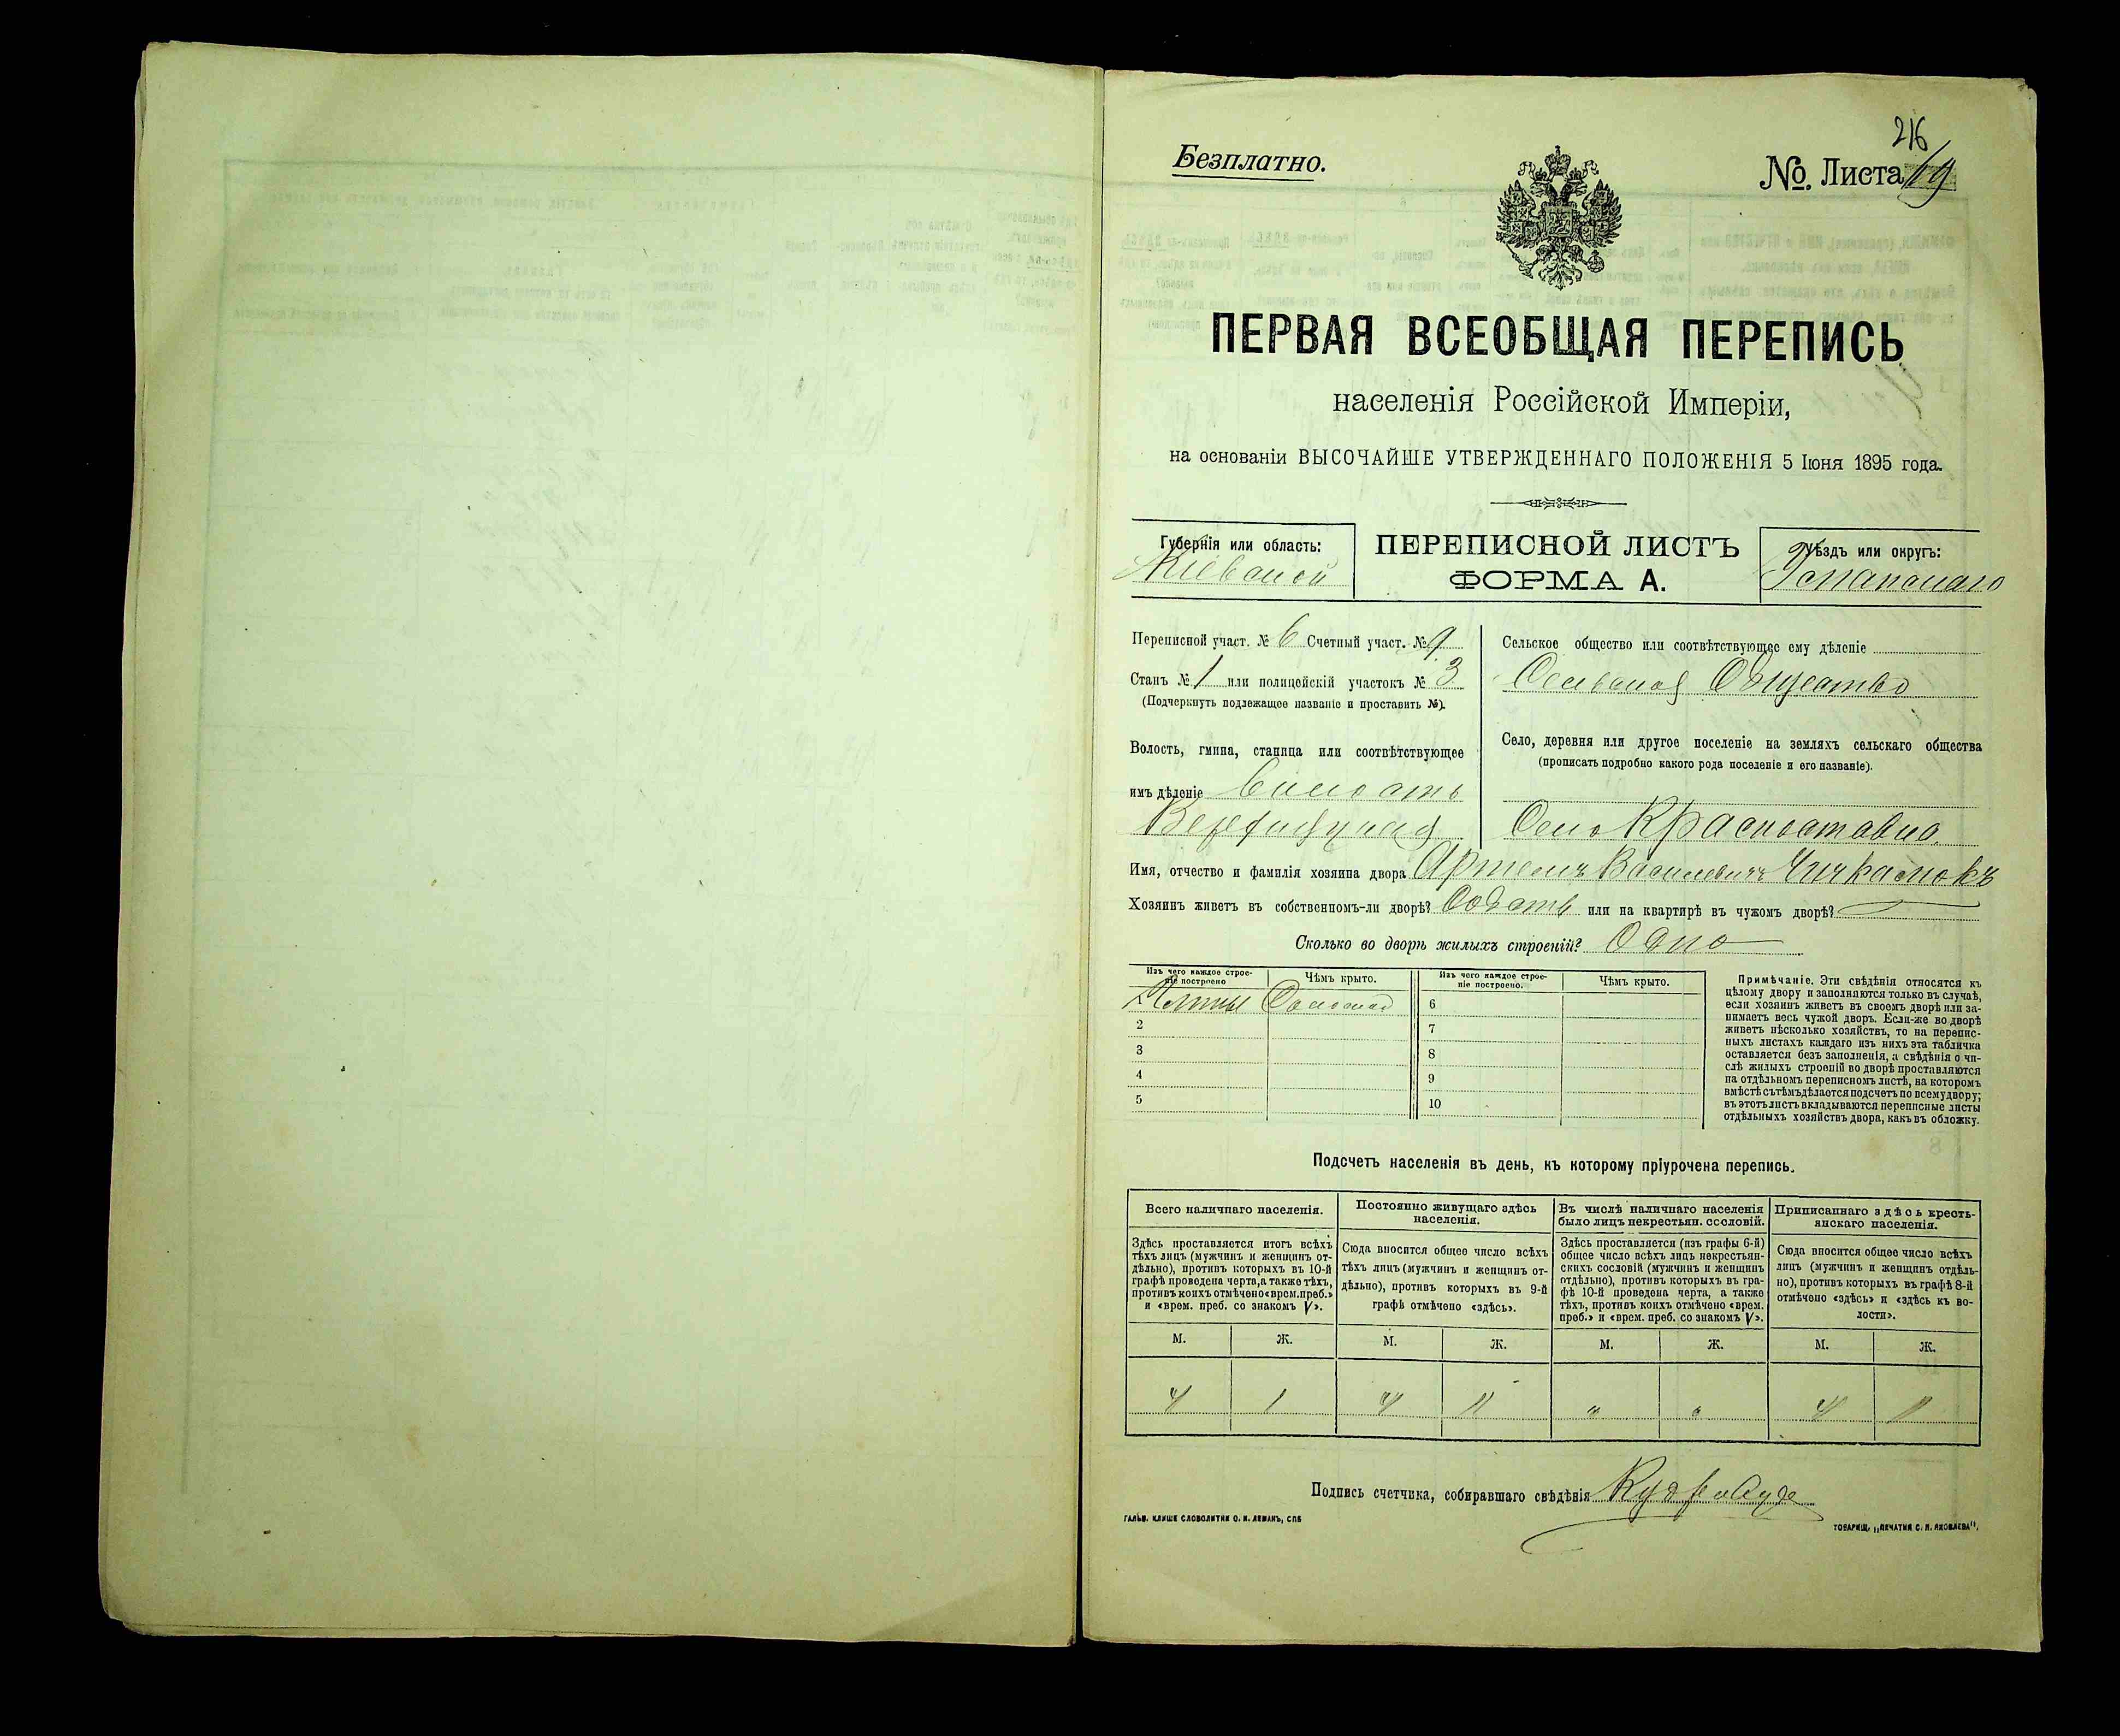 216
Безплатно.
№. Листа 69
ПЕРВАЯ ВСЕОБЩАЯ ПЕРЕПИСЬ
населенія Россійской Имперіи,
на основаніи ВЫСОЧАЙШЕ УТВЕРЖДЕННАГО ПОЛОЖЕНІЯ 5 Іюня 1895 года.
Губернія или область:
Кіевской
ПЕРЕПИСНОЙ ЛИСТЪ
ФОРМА А.
Уѣздъ или округъ:
Переписной участ. № 6 Счетный участ. № 9
Станъ № 1 или полицейскій участокъ № 3
(Подчеркнуть подлежащее названіе и проставить №).
Волость, гмина, станица или соотвѣтствующее
имъ дѣленіе Волость
Сельское общество или соотвѣтствующее ему дѣленіе
Сельское Общество
Село, деревня или другое поселеніе на земляхъ сельскаго общества
(прописать подробно какого рода поселеніе и его названіе).
Село Красноставка.
Имя, отчество и фамилія хозяина двора Артемъ Васильевичъ
Хозяинъ живетъ въ собственномъ-ли дворѣ? или на квартирѣ въ чужомъ дворѣ?
Сколько во дворѣ жилыхъ строеній? Одно
Изъ чего каждое строе-
ніе построено
Чѣмъ крыто.
Изъ чего каждое строе-
ніе построено.
Чѣмъ крыто.
1 Глины Соломой
2
3
4
5
6
7
8
9
10
Примѣчаніе. Эти свѣдѣнія относятся къ
цѣлому двору и заполняются только въ случаѣ,
если хозяинъ живетъ въ своемъ дворѣ или за-
нимаетъ весь чужой дворъ. Если-же во дворѣ
живетъ нѣсколько хозяйствъ, то на перепис-
ныхъ листахъ каждаго изъ нихъ эта табличка
оставляется безъ заполненія, а свѣдѣнія о чи-
слѣ жилыхъ строеній во дворѣ проставляются
на отдѣльномъ переписномъ листѣ, на которомъ
вмѣстѣ съ тѣмъ дѣлается подсчетъ по всему двору;
въ этотъ листъ вкладываются переписные листы
отдѣльныхъ хозяйствъ двора, какъ въ обложку.
Подсчетъ населенія въ день, къ которому пріурочена перепись.
Всего наличнаго населенія.
Здѣсь проставляется итогъ всѣхъ
тѣхъ лицъ (мужчинъ и женщинъ от-
дѣльно), противъ которыхъ въ 10-й
графѣ проведена черта, а также тѣхъ,
противъ коихъ отмѣчено «врем. преб.»
и «врем. преб. со знакомъ V».
Постоянно живущаго здѣсь
населенія.
Сюда вносится общее число всѣхъ
тѣхъ лицъ (мужчинъ и женщинъ от-
дѣльно), противъ которыхъ въ 9-й
графѣ отмѣчено «здѣсь».
Въ числѣ наличнаго населенія
было лицъ некрестьян. сословій.
Здѣсь проставляется (изъ графы 6-й)
общее число всѣхъ лицъ некрестьян-
скихъ сословій (мужчинъ и женщинъ
отдѣльно), противъ которыхъ въ гра-
фѣ 10-й проведена черта, а также
тѣхъ, противъ коихъ отмѣчено «врем.
преб.» и «врем. преб. со знакомъ V».
Приписаннаго здѣсь кресть-
янскаго населенія.
Сюда вносится общее число всѣхъ
лицъ (мужчинъ и женщинъ отдѣль-
но), противъ которыхъ въ графѣ 8-й
отмѣчено «здѣсь» и «здѣсь къ во-
лости».
М. Ж. М. Ж. М. Ж. М. Ж.
4 1 4 1 " " 4 1
Подпись счетчика, собиравшаго свѣдѣнія
ГАЛЬВ. КЛИШЕ СЛОВОЛИТНИ О. И. ЛЕМАНЪ, СПБ
ТОВАРИЩ. „ПЕЧАТНЯ С. П. ЯКОВЛЕВА".